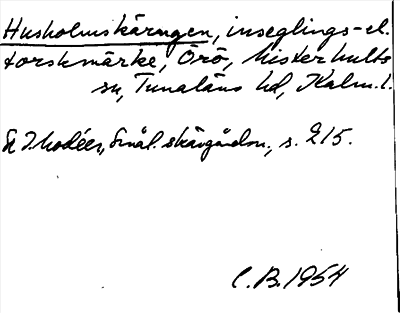 Husholmskäringen, inseglings- el.
torskmärke, Örö, Misterhults
sn, Tunaläns hd, Kalm. l.
Smål. skärgårdsn., s. 215.
C.B. 1954